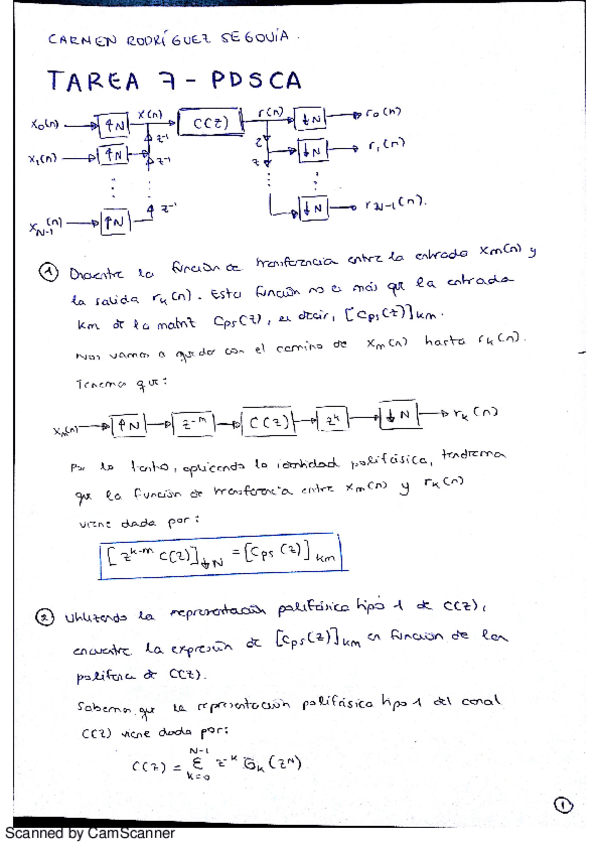 CARMEN RODRÍGUEZ SEGOVIA.
TAREA 7 - PDSCA
x₀(n) ↑N x(n) C(z) r(n) ↓N r₀(n)
x₁(n) ↑N z⁻¹ z ↓N r₁(n)
z⁻¹ z
x_{N-1}(n) ↑N z⁻¹ ↓N r_{N-1}(n).
① Encuentre la función de transferencia entre la entrada xm(n) y
la salida rk(n). Esta función no es más que la entrada
km de la matriz Cps(z), es decir, [Cps(z)]km.
Nos vamos a quedar con el camino de xm(n) hasta rk(n).
Tenemos que:
xm(n) ↑N z⁻ᵐ C(z) zᵏ ↓N rk(n)
Por lo tanto, aplicando la identidad polifásica, tendremos
que la función de transferencia entre xm(n) y rk(n)
viene dada por:
[z^{k-m} C(z)]↓N = [Cps(z)]km
② Utilizando la representación polifásica tipo 1 de C(z),
encuentre la expresión de [Cps(z)]km en función de las
polifases de C(z).
Sabemos que la representación polifásica tipo 1 del canal
C(z) viene dada por:
C(z) = Σ_{k=0}^{N-1} z⁻ᵏ Gk(zᴺ)
1
Scanned by CamScanner